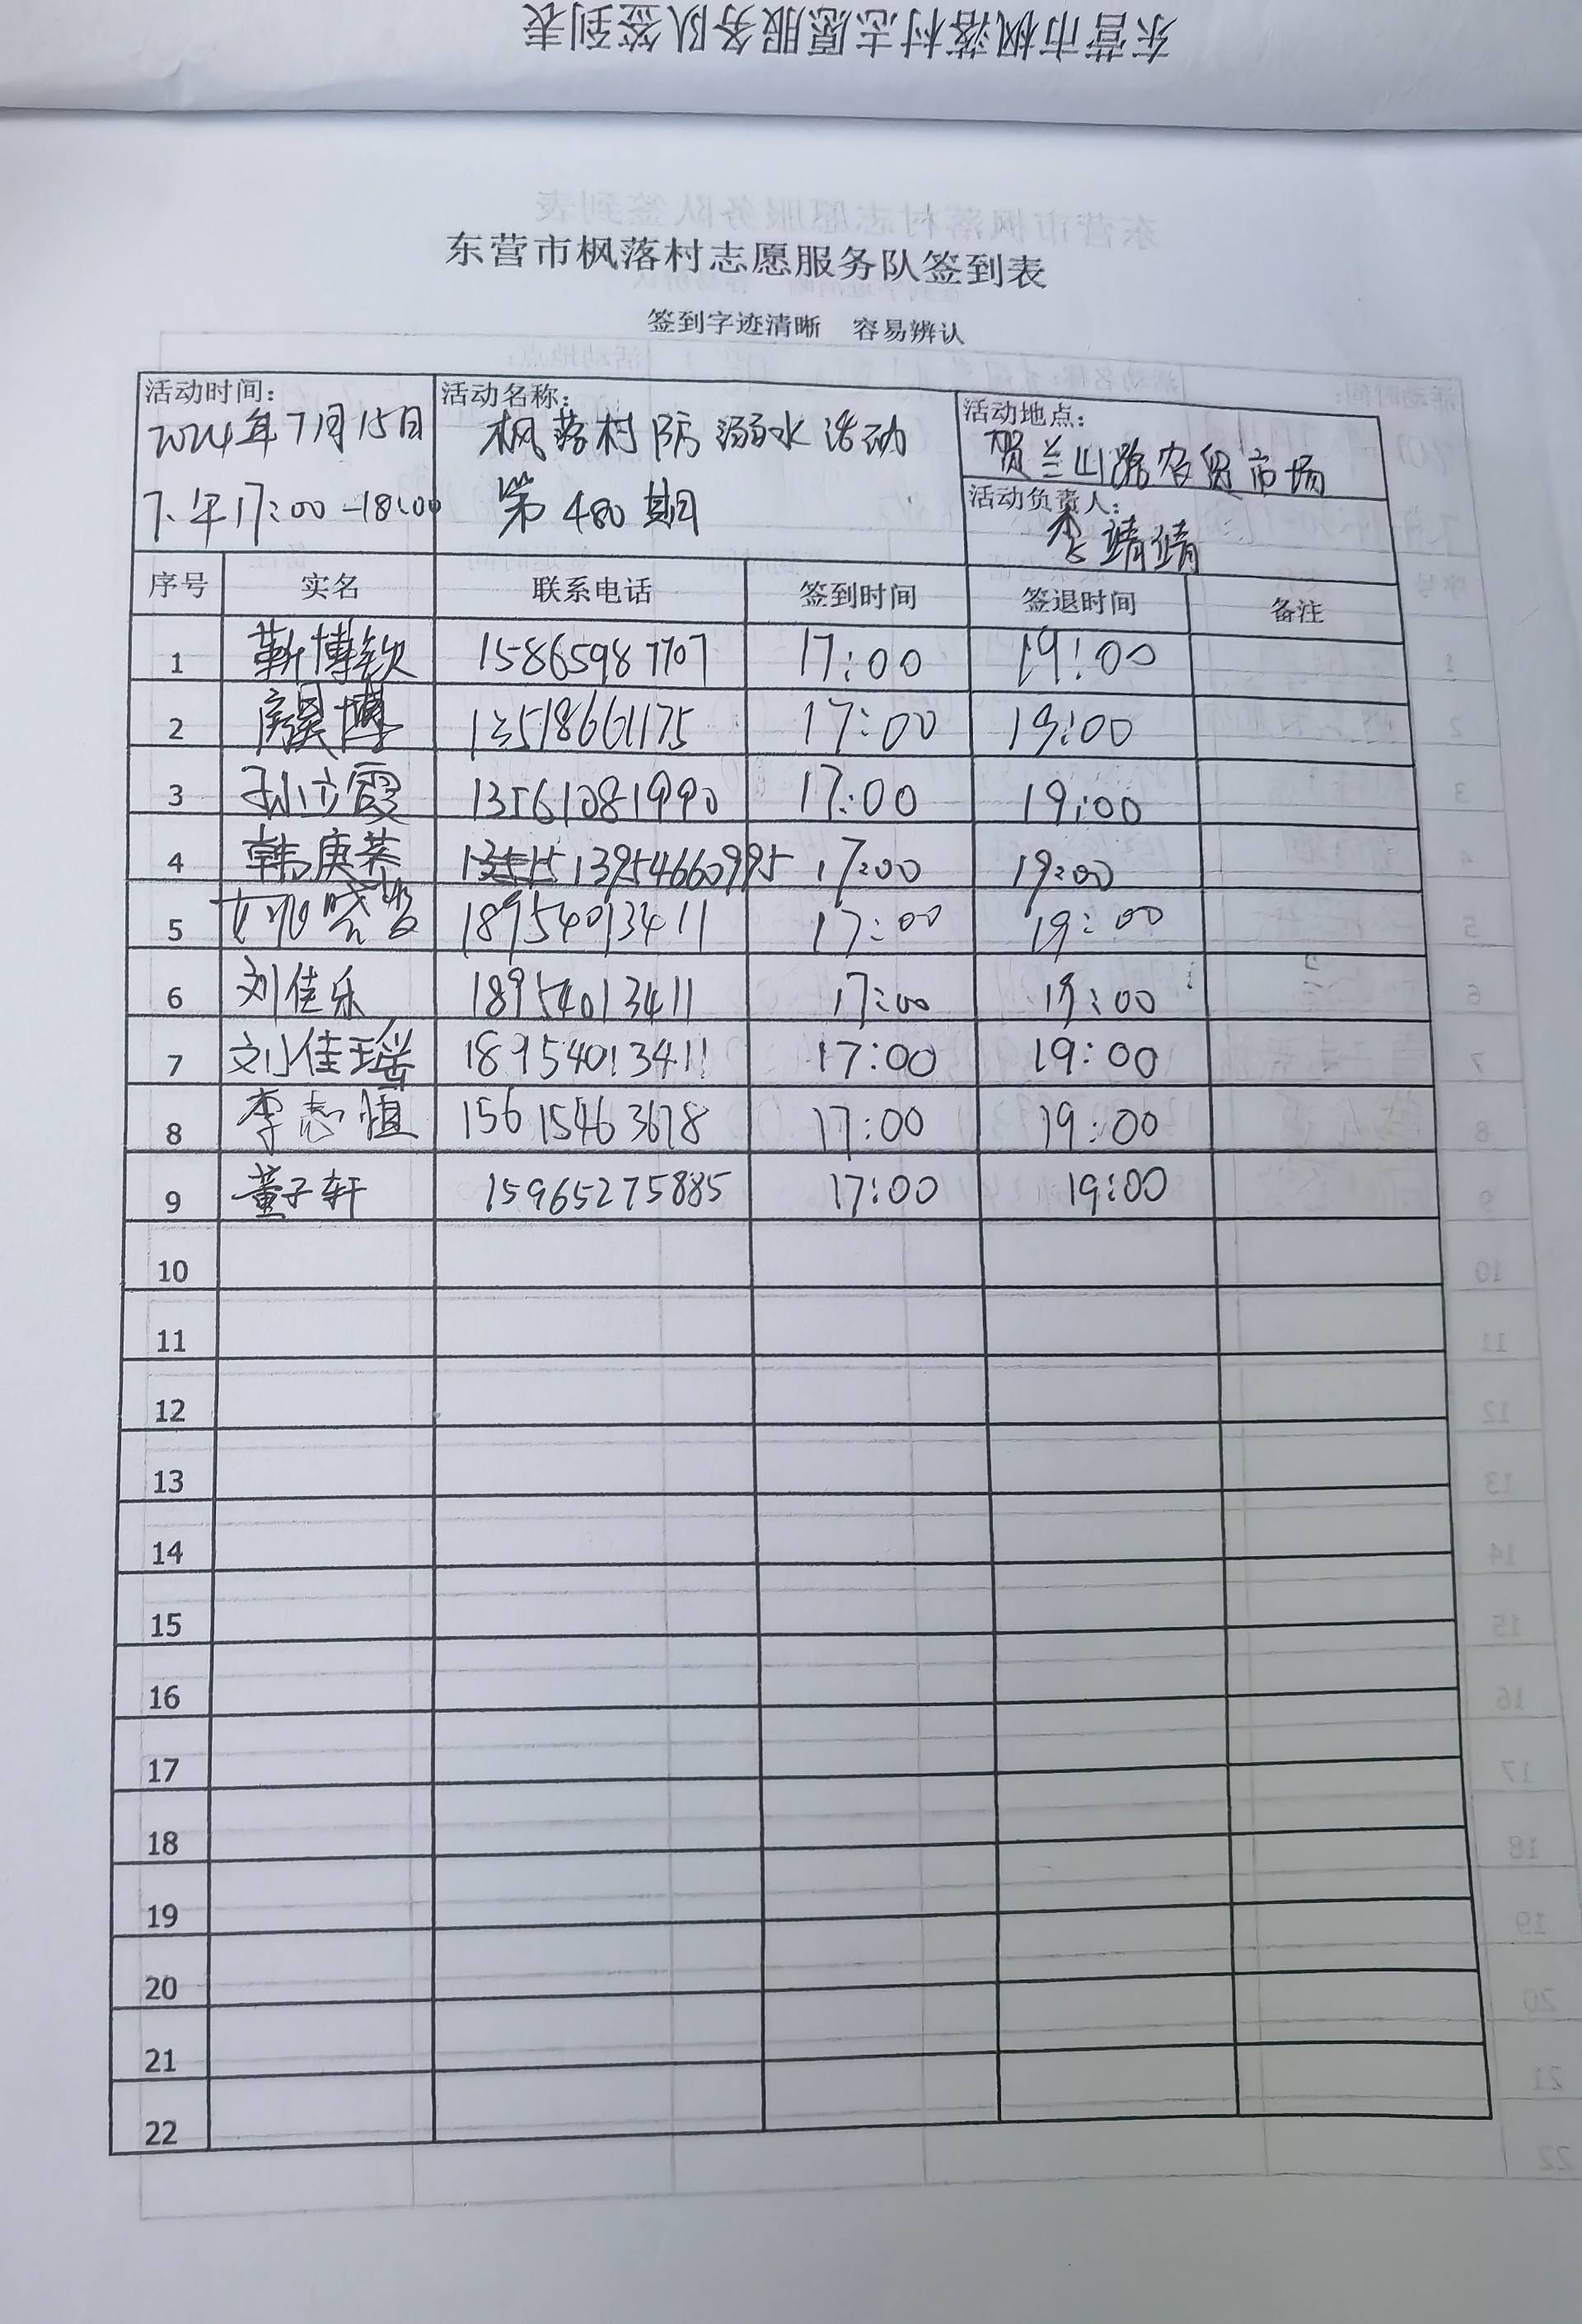 东营市枫落村志愿服务队签到表
东营市枫落村志愿服务队签到表
签到字迹清晰 容易辨认
活动时间: 活动名称: 活动地点:
2024年7月15日 枫落村防溺水活动 贺兰山路农贸市场
下午17:00-18:00 第480期 活动负责人:
李靖靖
序号 实名 联系电话 签到时间 签退时间 备注
1 靳博钦 15865987707 17:00 19:00
2 博 13518661175 17:00 19:00
3 孙立霞 13561081990 17:00 19:00
4 韩庚荣 13954660995 17:00 19:00
5 18954013411 17:00 19:00
6 刘佳乐 18954013411 17:00 19:00
7 刘佳瑶 18954013411 17:00 19:00
8 李志恒 15615463678 17:00 19:00
9 董子轩 15965275885 17:00 19:00
10
11
12
13
14
15
16
17
18
19
20
21
22